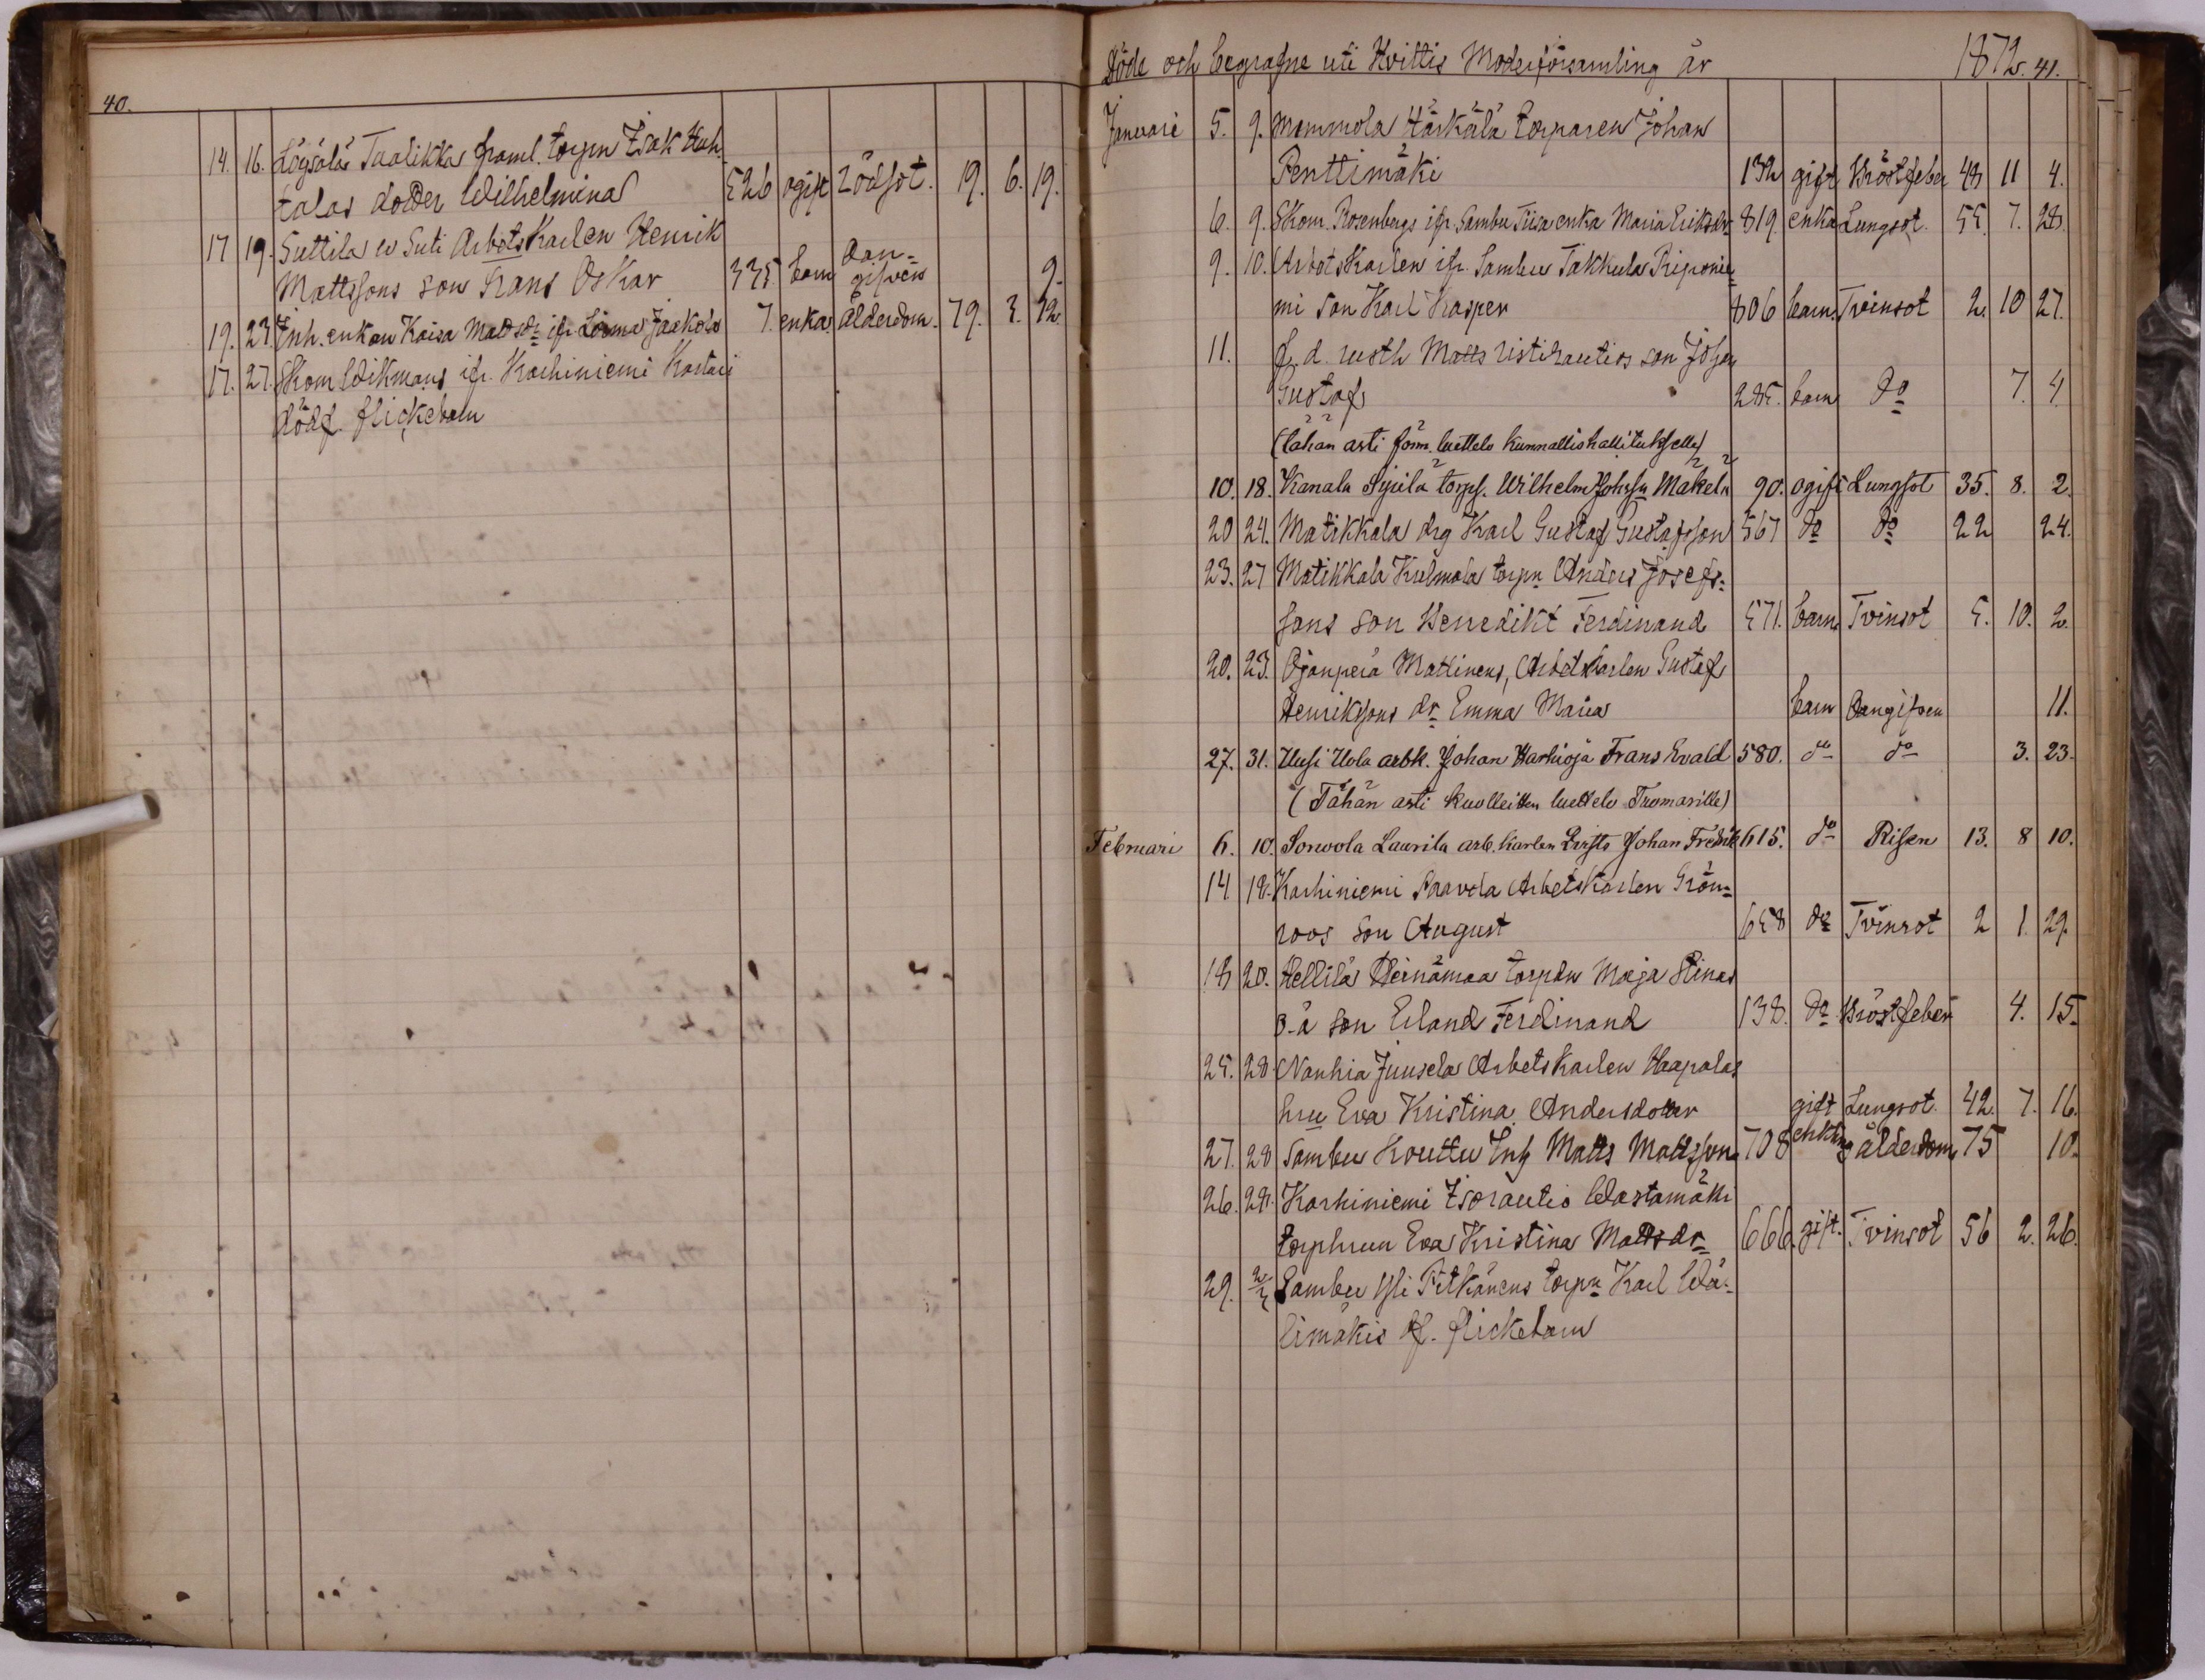 40.
14. 16. Löysälä Taalikka framl. torpn Isak Huh
talas dotter Wilhelmina 526 ogift Lödsot. 19. 6. 19.
17 19. Suttila Suti Arbetskarlen Henrik
Mattssons son Frans Oskar 335. barn Ban=
gifven 9.
19. 23. Inh. enkan Kaisa Mattsdr ifr Loima Jaakola 7. enka ålderdom. 79. 3. 12.
17. 27. Skom Wikmans ifr. Karhiniemi Kartari
dödf. flickebarn
Döde och begrafne uti Hvittis Moderförsamling år 1872. 41.
Januari 5. 9. Mommola Härkälä torparen Johan
Penttimäki 132 gift Bröstfeber 48 11 4.
6. 9. Skom. Rosenbergs ifr. Sambu Tiisa enka Maria Eriksdr 819 enka Lungsot. 55. 7. 28.
9. 10. Arbetskarlen ifr. Sambu Takkula Riponie
mi son Karl Kasper 806 barn Tvinsot 2. 10 27.
11. f. d. rusth Matts Ristirautios son Johan
Gustaf 285. barn do 7. 4.
(Tähän asti förm. luettelo kunnallishallitukselle)
10. 18. Kanala Sipilä torps. Wilhelm JohsSn Mäkelä 90. ogift Lungsot 35. 8. 2.
20 24. Matikkala drg Karl Gustaf Gustafsson 567 do do 22 24.
23. 27 Matikkala Kulmala torpn Anders Josefs=
sons son Benedikt Ferdinand 571. barn Tvinsot 5. 10. 2.
20. 23. Ojanperä Mattinens, Arbetskarlen Gustaf
Henrikssons dr Emma Maria barn Bangifven 11.
27. 31. Uusi Uola arbk. Johan Harhioja Frans Evald 580. do do 3. 23.
(Tähän asti kuolleitten luettelo Tuomarille)
Februari 6. 10. Sonnola Laurila arb. karlen Johan Fredrik 615. do Risen 13. 8 10.
14 18. Karhiniemi Paavola Arbetskarlen Grön=
roos son August 658 do Tvinsot 2 1. 29.
18 20. Hellilä Heinämaa torpdn Maja Stinas
o. ä son Erland Ferdinand 138. do Bröstfeber 4. 15.
25. 28 Nanhia Juusela Arbetskarlen Haapalas
hru Eva Kristina Andersdotter gift Lungsot. 42. 7. 16.
27. 28 Sambu Kouttu Inh Matts Mattsson 708 enkling ålderdom 75 10.
26. 28. Karhiniemi Isorautio Wastamäki
torphrun Eva Kristina Mattsdr 666. gift. Tvinsot 56 2. 26.
29. 2/3 Sambu Yli Pitkänens torpn Karl Wä=
limäkis df. flickebarn